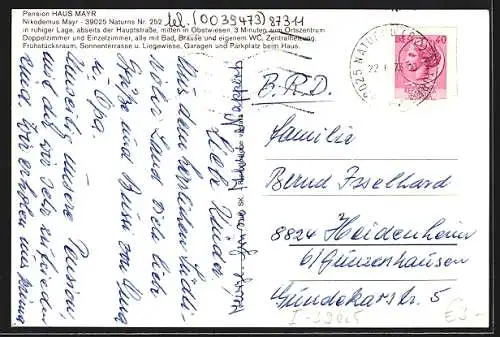 Pension HAUS MAYR
Nikodemus Mayr - 39025 Naturns Nr. 252
in ruhiger Lage, abseits der Hauptstraße, mitten in Obstwiesen. 3 Minuten zum Ortszentrum
Doppelzimmer und Einzelzimmer, alle mit Bad, Brause und eigenem WC, Zentralheizung.
Frühstücksraum, Sonnenterrasse u. Liegewiese, Garagen und Parkplatz beim Haus.
tel. (0039473) 87311
Liebe Kinder,
Aus dem herrlichen Südti-
roler Land viele liebe
Grüße und Bussi von Oma
u. Opa.
unsere Pension,
wir sind sehr zufrieden
und erholen uns
B.R.D.
Familie
Bernd Isselhard
8824 Heidenheim
b/ Günzenhausen
Gundekarstr. 5
39025 NATURNO
22
40
I-39025
E3-